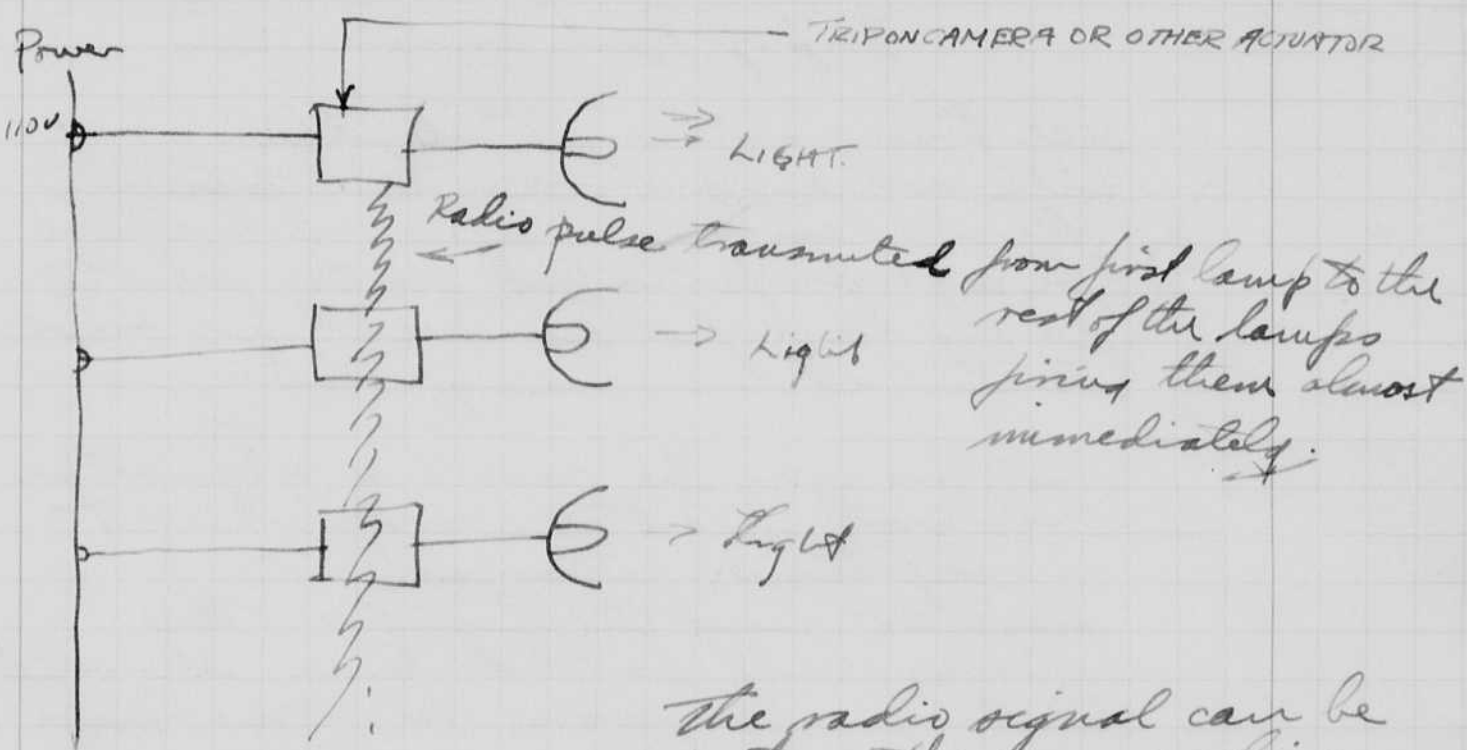 Power
TRIP ON CAMERA OR OTHER ACTUATOR
110V
LIGHT.
Radio pulse transmitted from first lamp to the
rest of the lamps
firing them almost
immediately.
Light
Light
The radio signal can be